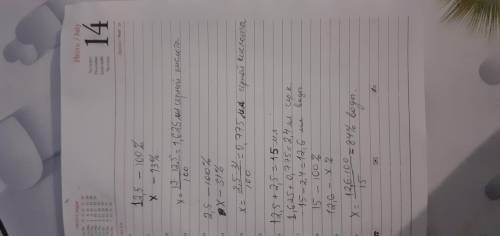 14
12,5 – 100%
x – 13%
x = 13·12,5/100 = 1,625 мл серной кислоты
2,5 – 100%
x – 31%
x = 2,5·31/100 = 0,775 мл серной кислоты
12,5 + 2,5 = 15 мл
1,625 + 0,775 = 2,4 мл сер. к.
15 – 2,4 = 12,6 мл воды
15 – 100%
12,6 – x %
x = 12,6·100/15 = 84% воды